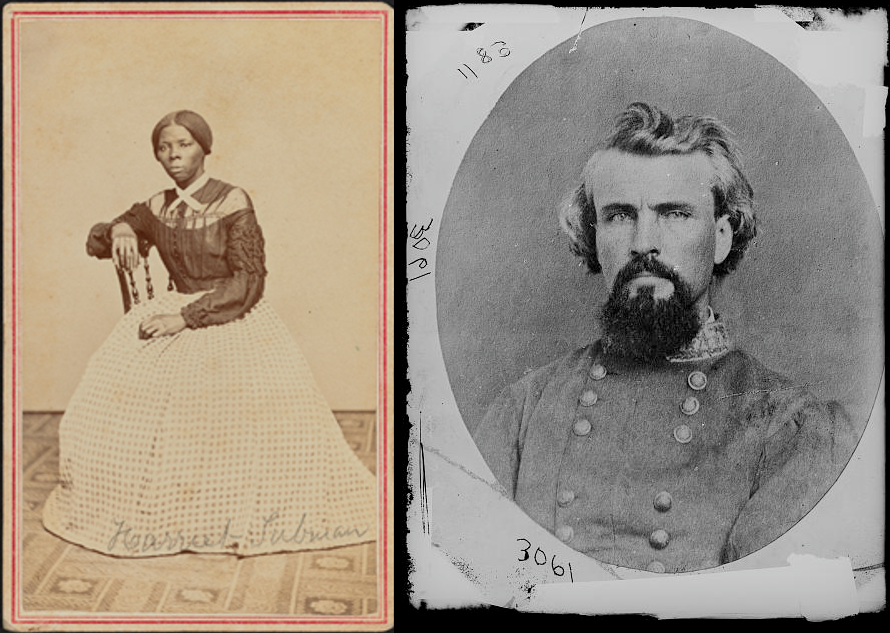 Harriet Tubman
1183
3061
3061